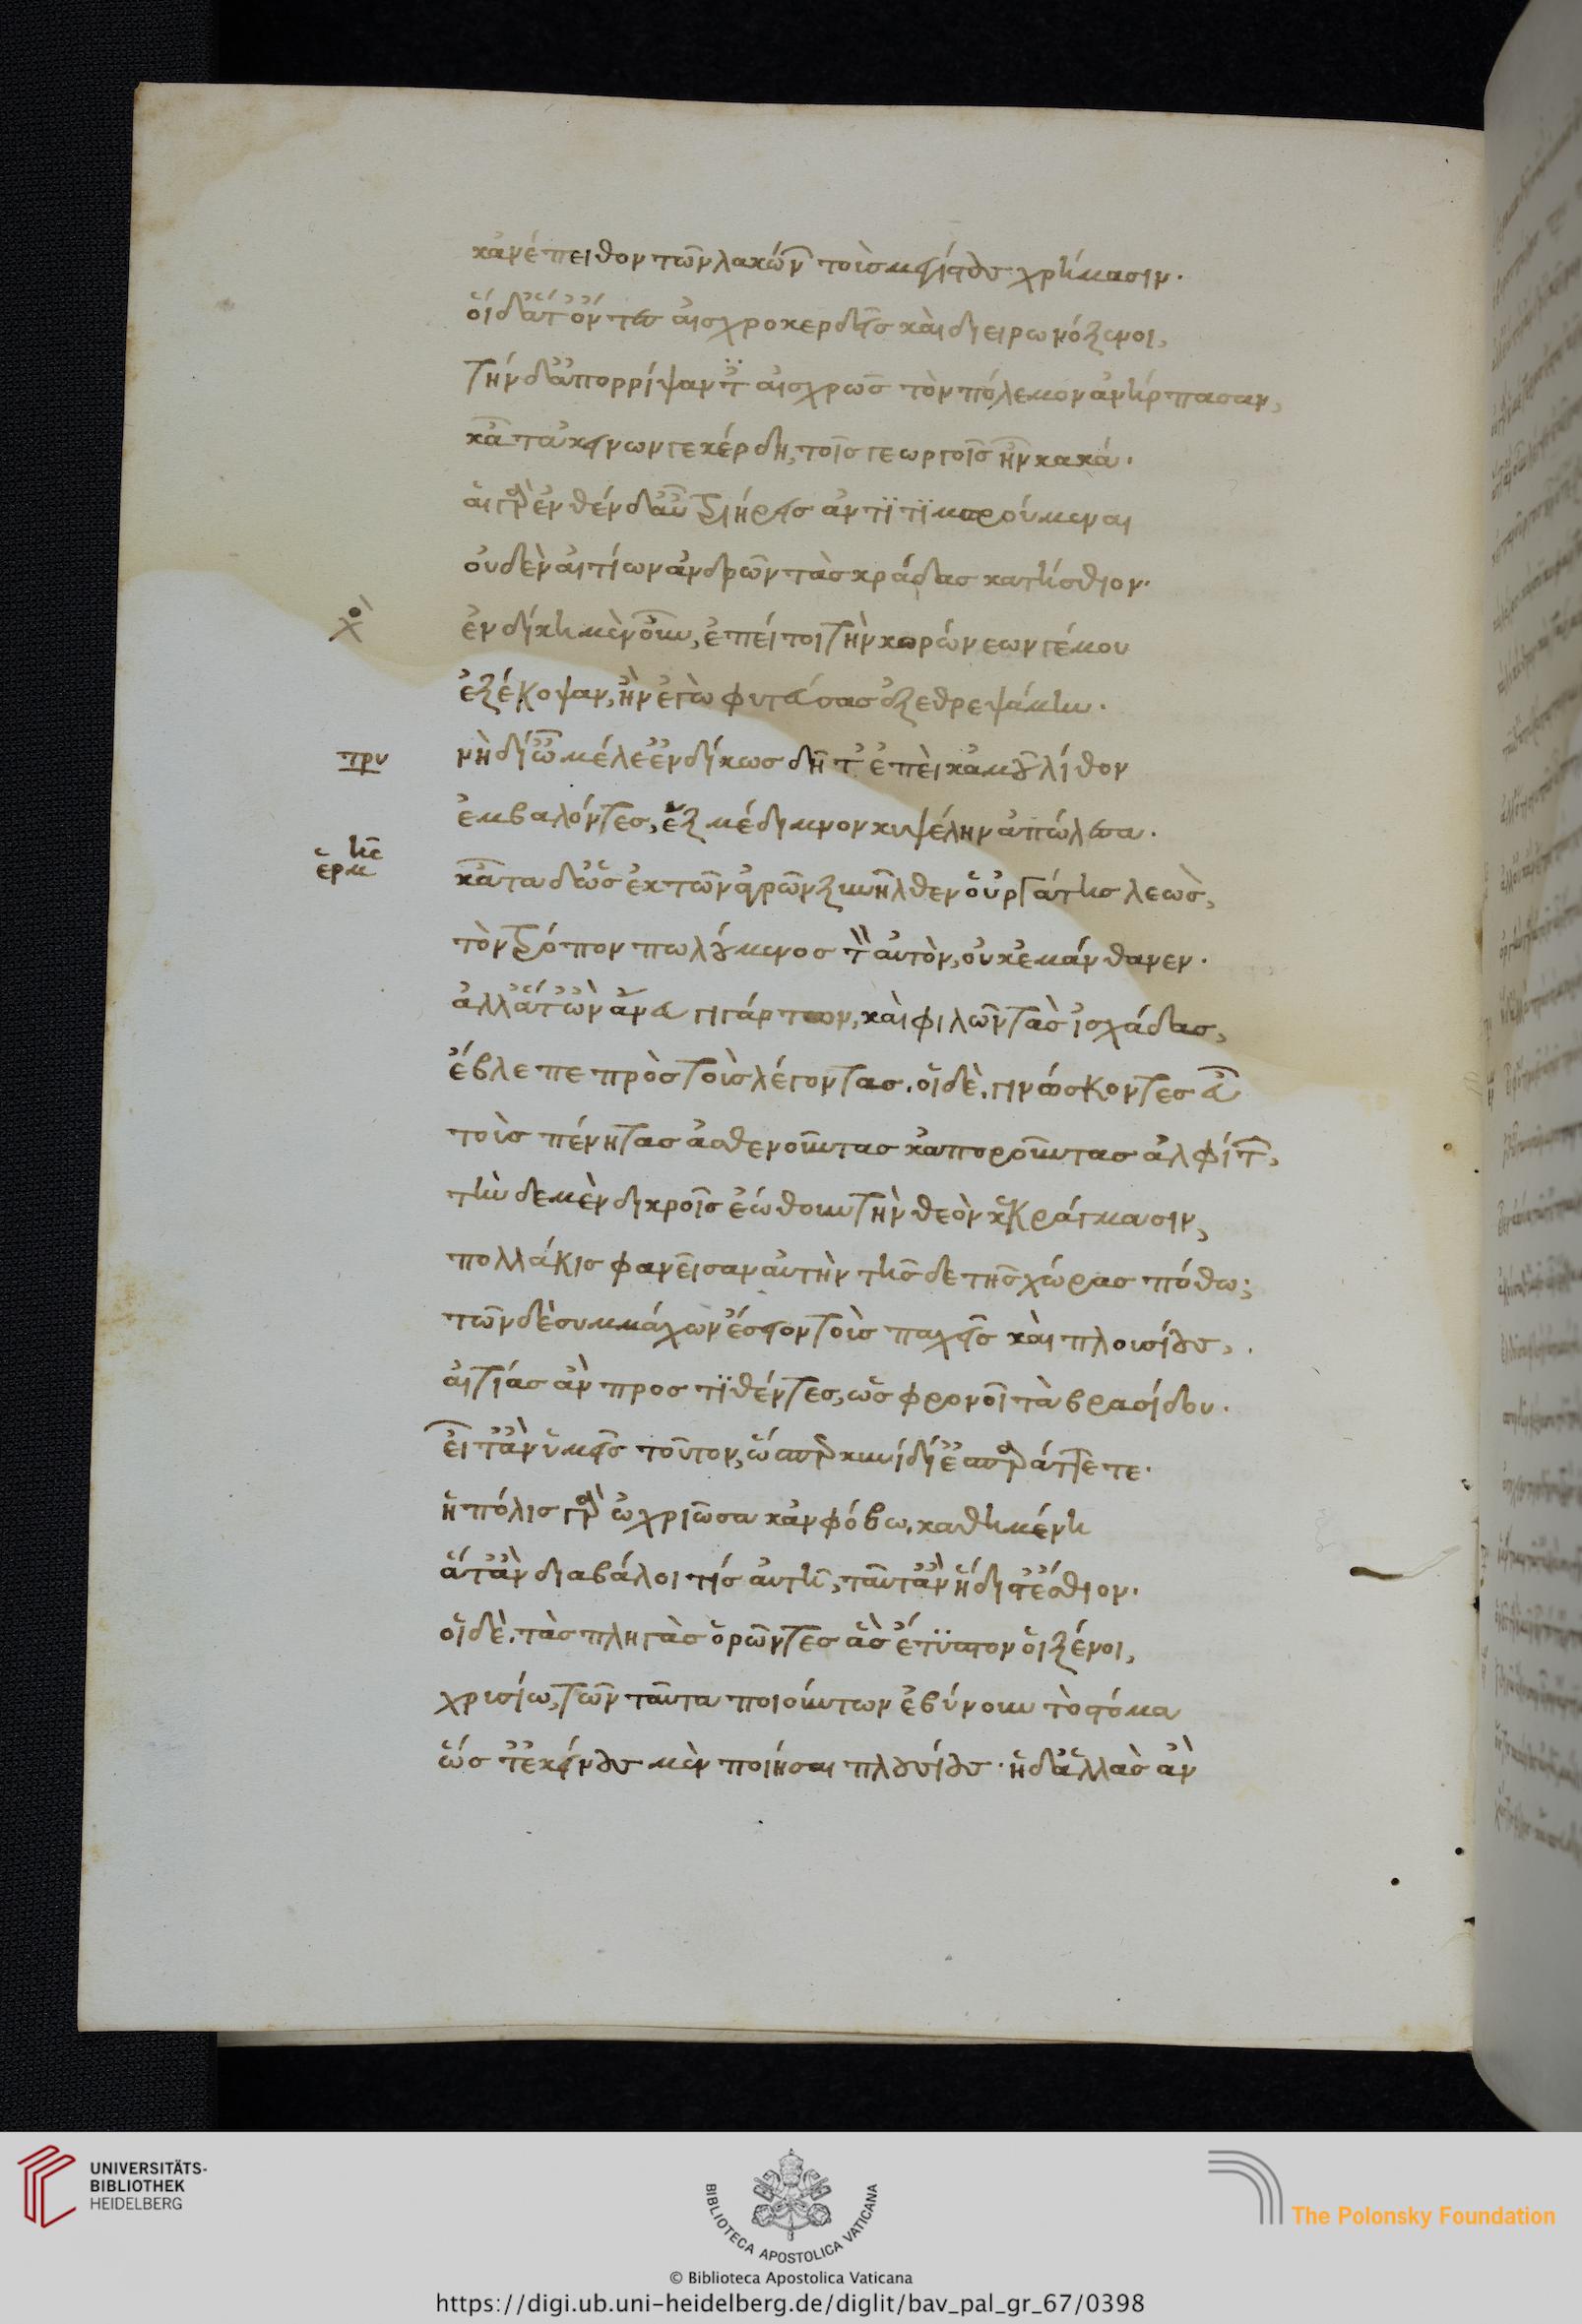 κἀνέπειθον τῶν λακώνων τοὺς μεγίστους χρήμασιν.
οἱ δ' ἅτ' ὄντες αἰσχροκερδεῖς καὶ διειρωνόξενοι,
τήνδ' ἀπορρίψαντες αἰσχρῶς τὸν πόλεμον ἀνήρπασαν,
κᾆτα τἀκείνων γε κέρδη, τοῖς γεωργοῖς ἦν κακά.
αἱ γὰρ ἐνθένδ' αὖ τριήρεις ἀντιτιμωρούμεναι
οὐδὲν αἰτίων ἀνδρῶν τὰς κράδας κατήσθιον.
χο ἐν δίκῃ μὲν οὖν, ἐπεί τοι τὴν κορώνεων γέ μου
ἐξέκοψαν, ἣν ἐγὼ φυτεύσας ἐξεθρεψάμην.
τρυ νὴ δί' ὦ μέλε' ἐνδίκως δῆτ' ἐπεὶ κἀμοῦ λίθον
ἐμβαλόντες, ἑξμέδιμνον κυψέλην ἀπώλεσαν.
ἑρμῆς κᾆτα δ' ὡς ἐκ τῶν ἀγρῶν ξυνῆλθεν οὑργάτης λεὼς,
τὸν τρόπον πωλούμενος τὸν αὐτὸν, οὐκ ἐμάνθανεν.
ἀλλ' ἅτ' ὢν ἄνευ γιγάρτων, καὶ φιλῶν τὰς ἰσχάδας,
ἔβλεπε πρὸς τοὺς λέγοντας. οἱ δὲ. γινώσκοντες εὖ
τοὺς πένητας ἀσθενοῦντας κἀποροῦντας ἀλφίτων,
τήνδε μὲν δικροῖς ἐώθουν τὴν θεὸν κεκράγμασιν,
πολλάκις φανεῖσαν αὐτὴν τῆσδε τῆς χώρας πόθῳ;
τῶν δὲ συμμάχων ἔσειον τοὺς παχεῖς καὶ πλουσίους,
αἰτίας ἂν προστιθέντες, ὡς φρονοῖ τὰ βρασίδου.
εἶτ' ἂν ὑμεῖς τοῦτον, ὥσπερ κυνίδι' ἐσπαράττετε.
ἡ πόλις γὰρ ὠχριῶσα κἀν φόβῳ. καθημένη
ἅττ' ἂν διαβάλοι τίς αὐτῇ, ταῦτ' ἂν ἥδιστ' ἤσθιεν.
οἱ δὲ. τὰς πληγὰς ὁρῶντες ἃς ἐτύπτοντο οἱ ξένοι,
χρυσίῳ, τῶν ταῦτα ποιούντων ἐβύνουν τὸ στόμα
ὥστ' ἐκείνους μὲν ποιῆσαι πλουσίους. ἡ δ' ἑλλὰς ἂν
UNIVERSITÄTS-
BIBLIOTHEK
HEIDELBERG
BIBLIOTECA APOSTOLICA VATICANA
The Polonsky Foundation
© Biblioteca Apostolica Vaticana
https://digi.ub.uni-heidelberg.de/diglit/bav_pal_gr_67/0398